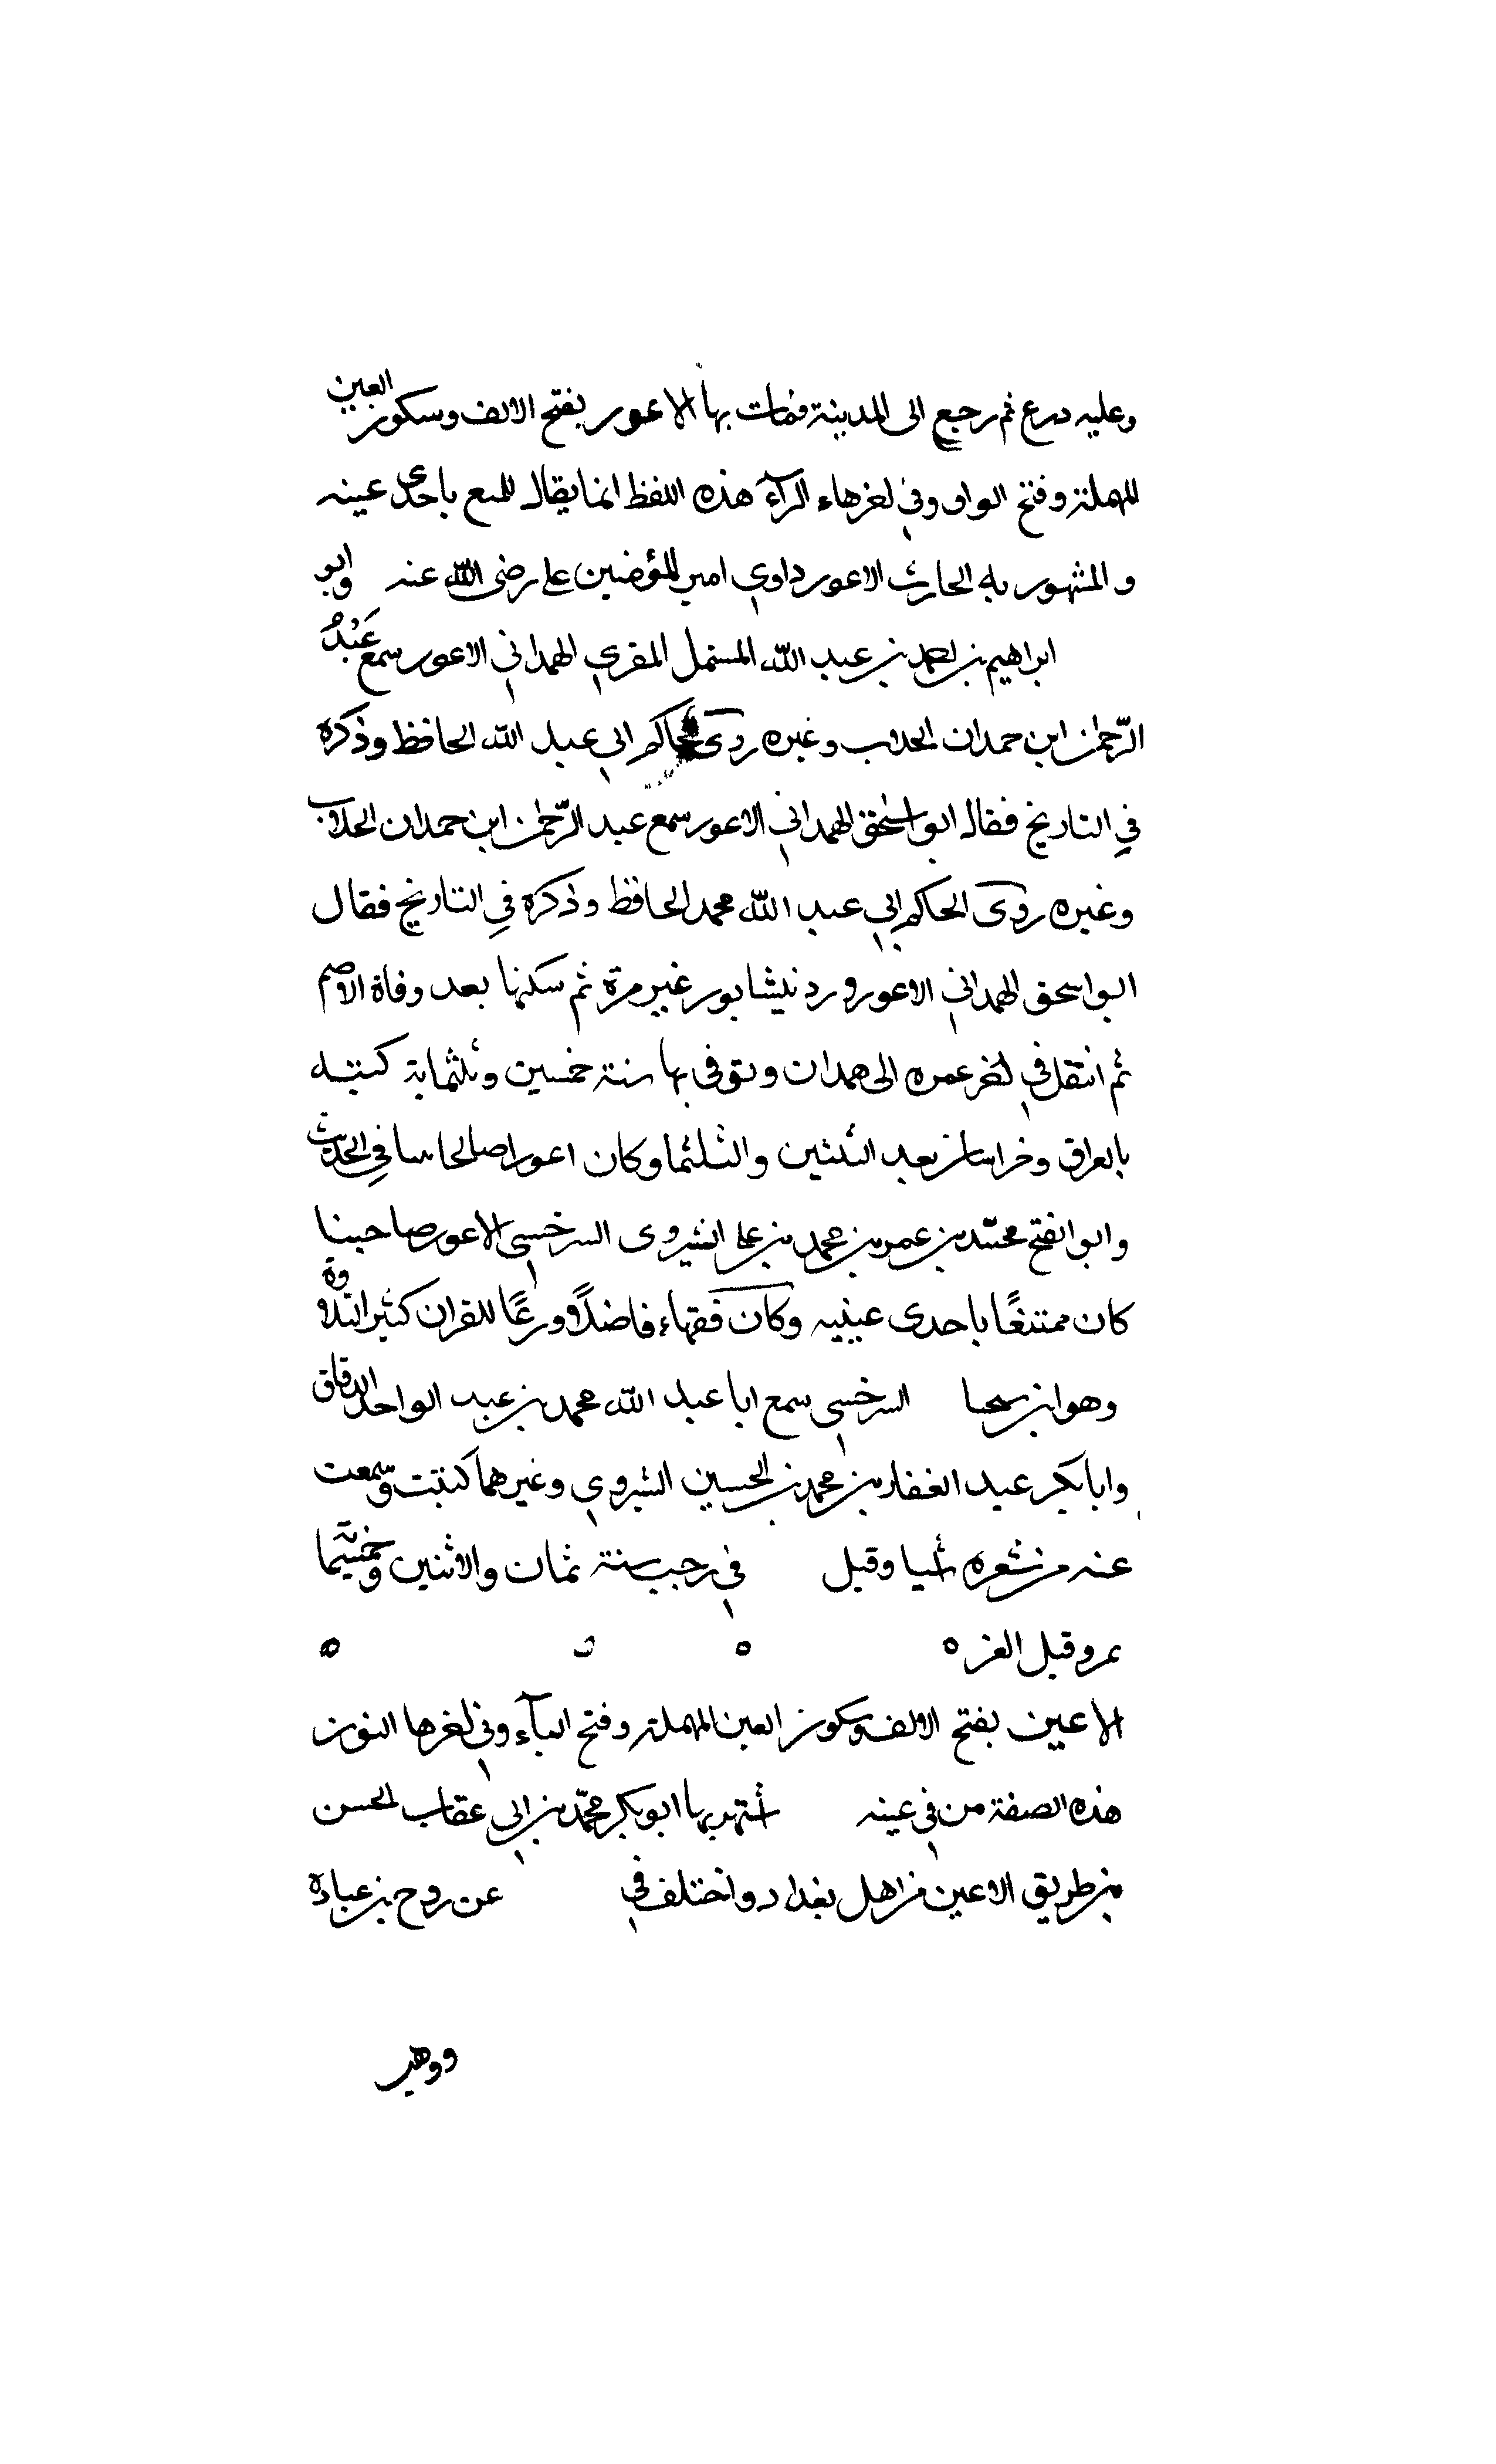 وعليه درع ثم رجع الى المدينة فمات بها الاعور بفتح الالف وسكون العين
المهملة وفتح الواو وفي اخرهاء الراء هذه اللفظ انما يقال للمتع باحدى عينه
والمشهور به الحارث الاعور داوي امير المؤمنين على رضى الله عنه وابو
ابراهيم بن احمد بن عبد الله المستمل المقري الهمداني الاعور سمع عبد
الرحمن ابن حمدان الجلاب وغيره روى الحاكم ابي عبد الله الحافظ وذكره
في التاريخ فقال ابو اسحق الهمداني الاعور سمع عبد الرحمن ابن حمدان الجلاب
وغيره روى الحاكم ابي عبد الله محمد الحافظ وذكره في التاريخ فقال
ابو اسحق الهمداني الاعور ورد نيشابور غير مرة ثم سكنها بعد وفاة الاصم
ثم انتقل في اخر عمره الى همدان وتوفى بها سنة خمسين وثلثماية كتبته
بالعراق وخراسان بعد الثلثين والثلثما وكان اعورا صالحا في الحديث
وابو الفتح محمد بن عمر بن محمد بن على الشيروى السرخسي الاعور صاحبنا
كان ممتنعًا باحدى عينيه وكان فقهاء فاضلاً ورعًا للقران كثير التلاوة
وهو ابن السرخسي سمع ابا عبد الله محمد بن عبد الواحد الدقاق
وابا بكر عبد الغفار بن محمد بن الحسين الشيروي وغيرهما كتبت وسمعت
عنه من شعره شيا وقبل في رجب سنة ثمان والاثنين وخمسيماية
بمرو قبل الغزه ه ه
الاعين بفتح الالف وسكون العين المهملة وفتح الياء وفي اخرها النون
هذه الصفة من في عينه اشتهر بها ابو بكر محمد بن ابي عقاب الحسن
بن طريق الاعين من اهل بغداد واختلف في عن روح بن عبادة
ووهب